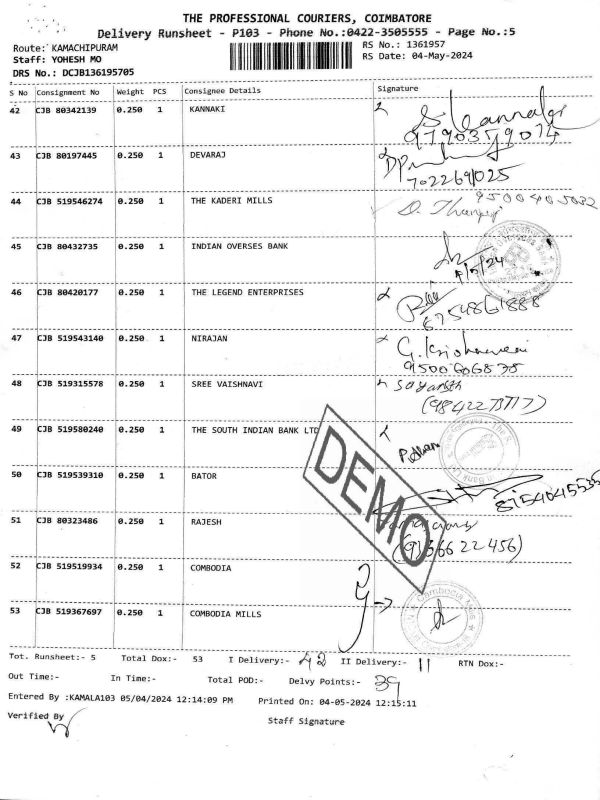 THE PROFESSIONAL COURIERS, COIMBATORE
Delivery Runsheet - P103 - Phone No.:0422-3505555 - Page No.:5
Route: KAMACHIPURAM
RS No.: 1361957
Staff: YOHESH MO
RS Date: 04-May-2024
DRS No.: DCJB136195705
S No Consignment No Weight PCS Consignee Details Signature
42 CJB 80342139 0.250 1 KANNAKI
9790359074
43 CJB 80197445 0.250 1 DEVARAJ
7022691025
44 CJB 519546274 0.250 1 THE KADERI MILLS 9500405032
45 CJB 80432735 0.250 1 INDIAN OVERSES BANK
46 CJB 80420177 0.250 1 THE LEGEND ENTERPRISES
8754861888
47 CJB 519543140 0.250 1 NIRAJAN
9500606838
48 CJB 519315578 0.250 1 SREE VAISHNAVI
49 CJB 519580240 0.250 1 THE SOUTH INDIAN BANK LTD
50 CJB 519539310 0.250 1 BATOR
8154045535
51 CJB 80323486 0.250 1 RAJESH
52 CJB 519519934 0.250 1 COMBODIA
53 CJB 519367697 0.250 1 COMBODIA MILLS
DEMO
Tot. Runsheet:- 5 Total Dox:- 53 I Delivery:- 42 II Delivery:- 11 RTN Dox:-
Out Time:- In Time:- Total POD:- Delvy Points:- 39
Entered By :KAMALA103 05/04/2024 12:14:09 PM Printed On: 04-05-2024 12:15:11
Verified By
Staff Signature